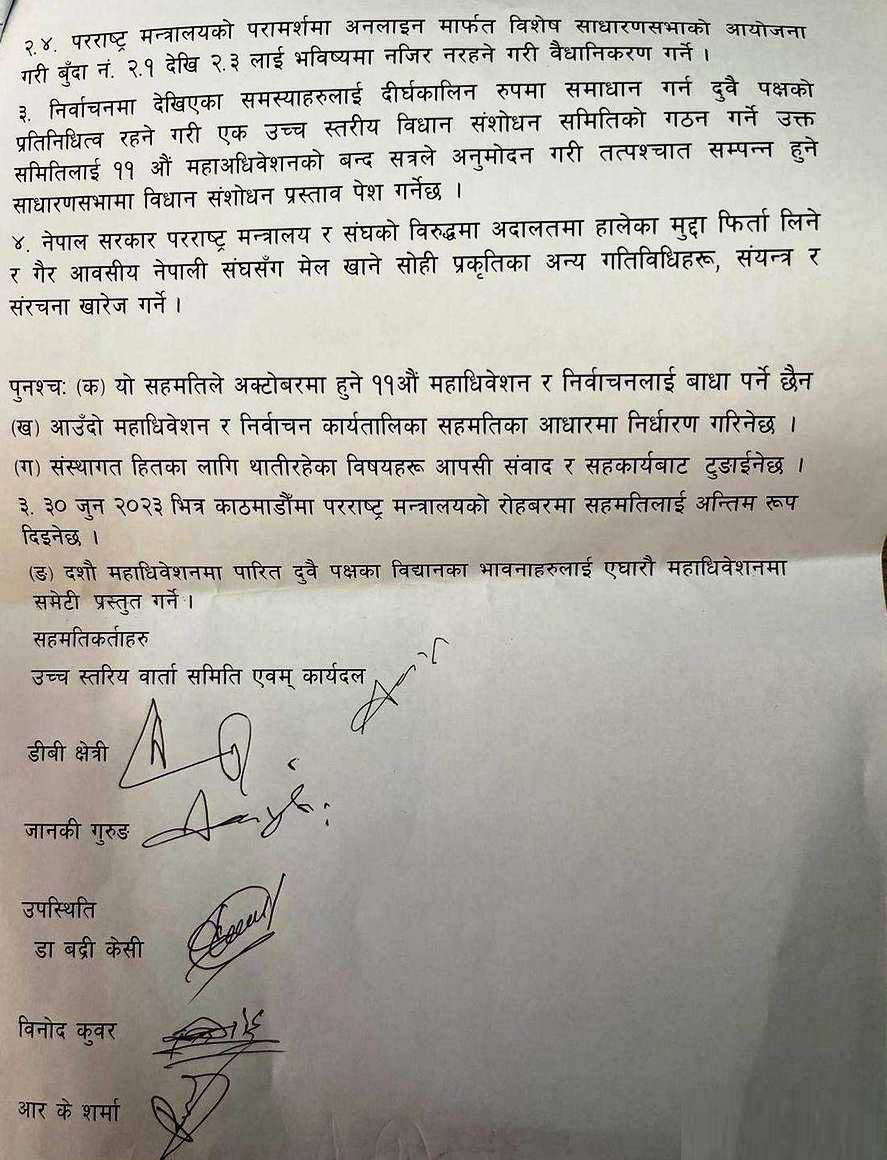 २.४. परराष्ट्र मन्त्रालयको परामर्शमा अनलाइन मार्फत विशेष साधारणसभाको आयोजना
गरी बुँदा नं. २.१ देखि २.३ लाई भविष्यमा नजिर नरहने गरी वैधानिकरण गर्ने ।
३. निर्वाचनमा देखिएका समस्याहरुलाई दीर्घकालिन रुपमा समाधान गर्न दुवै पक्षको
प्रतिनिधित्व रहने गरी एक उच्च स्तरीय विधान संशोधन समितिको गठन गर्ने उक्त
समितिलाई ११ औं महाअधिवेशनको बन्द सत्रले अनुमोदन गरी तत्पश्चात सम्पन्न हुने
साधारणसभामा विधान संशोधन प्रस्ताव पेश गर्नेछ ।
४. नेपाल सरकार परराष्ट्र मन्त्रालय र संघको विरुद्धमा अदालतमा हालेका मुद्दा फिर्ता लिने
र गैर आवसीय नेपाली संघसँग मेल खाने सोही प्रकृतिका अन्य गतिविधिहरू, संयन्त्र र
संरचना खारेज गर्ने ।
पुनश्च: (क) यो सहमतिले अक्टोबरमा हुने ११औं महाधिवेशन र निर्वाचनलाई बाधा पर्ने छैन
(ख) आउँदो महाधिवेशन र निर्वाचन कार्यतालिका सहमतिका आधारमा निर्धारण गरिनेछ ।
(ग) संस्थागत हितका लागि थातीरहेका विषयहरू आपसी संवाद र सहकार्यबाट टुङाईनेछ ।
३. ३० जुन २०२३ भित्र काठमाडौंमा परराष्ट्र मन्त्रालयको रोहबरमा सहमतिलाई अन्तिम रूप
दिइनेछ ।
(ङ) दशौ महाधिवेशनमा पारित दुवै पक्षका विद्यानका भावनाहरुलाई एघारौ महाधिवेशनमा
समेटी प्रस्तुत गर्ने ।
सहमतिकर्ताहरु
उच्च स्तरिय वार्ता समिति एवम् कार्यदल
डीबी क्षेत्री
जानकी गुरुङ
उपस्थिति
डा बद्री केसी
विनोद कुवर
आर के शर्मा